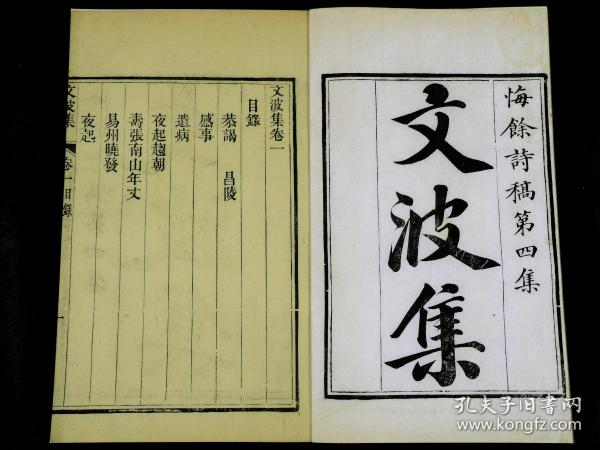 悔餘詩稿第四集
文波集
文波集卷一
目錄
恭謁 昌陵
感事
遣病
夜起趨朝
壽張南山年丈
易州曉發
夜起
文波集 卷一目錄 一
孔夫子旧书网
www.kongfz.com